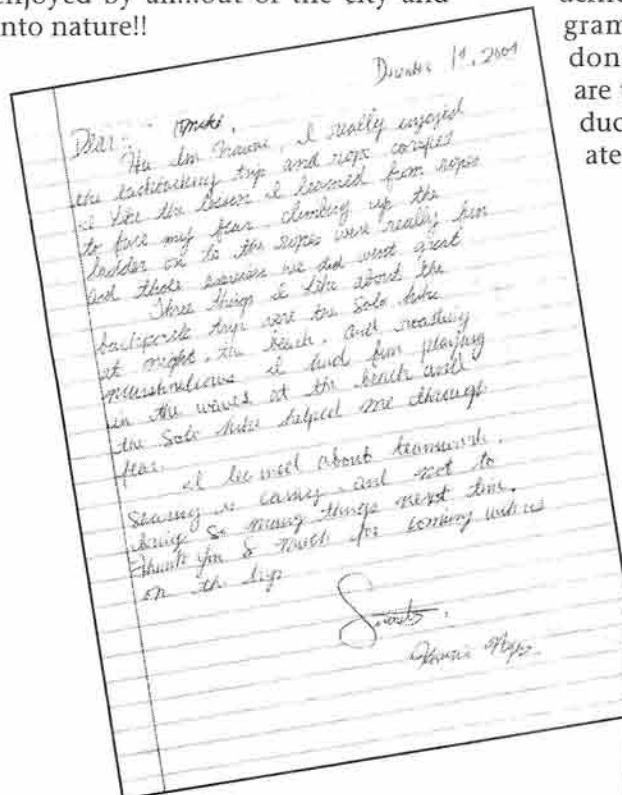 enjoyed by all...out of the city and
into nature!!
gram
don
are
duc
ate
2001
Dear
I really enjoyed
the backpacking trip and rope
I like the lesson I learned from ropes
to face my fear climbing up the
ladder on to the ropes were really fun
and those exercises we did went great
Three things I like about the
trip were the Solo hike
at night, the beach, and roasting
marshmallows I had fun playing
in the waves at the beach and
the Solo hike helped me through
fear.
I learned about teamwork.
Sharing is caring and not to
bring so many things next time.
Thank you so much for coming with us
on the trip